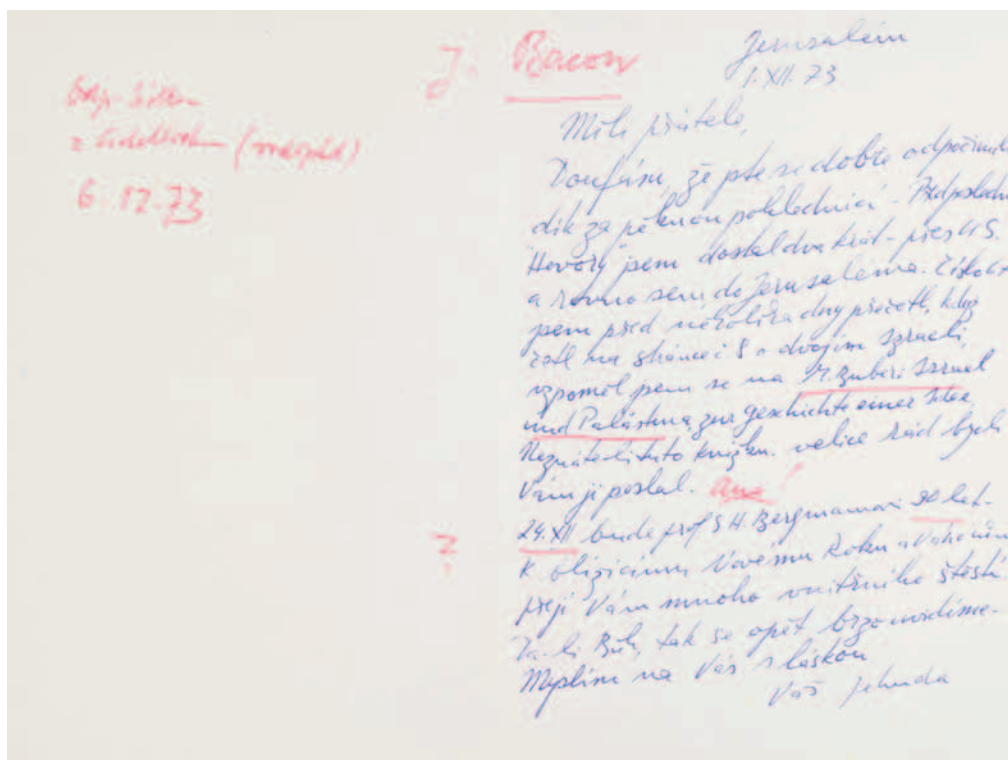 6.12.73
J. Bacon
Jerusalém
1.XII.73.
Milí přátelé,
Doufám, že jste se dobře odpočinuli
dík za pěknou pohlednici. Předposlední
"Hovory" jsem dostal dva krát - přes U.S.
a rovno sem do Jerusaléma. Číslo
jsem před několika dny přečetl, když
četl na stránce 8 o dvojím Izraeli,
vzpoměl jsem se na M. Buber: Israel
und Palästina, zur Geschichte einer Idee,
Neznáte-li tuto knížku. velice rád bych
Vám ji poslal. ano!
24.XII bude prof S H. Bergmanovi 90 let.
?
K blížícímu Novému Roku a Vánocům
přeji Vám mnoho vnitřního štěstí.
Dá-li Bůh, tak se opět brzo uvidíme.
Myslím na Vás s láskou
Váš Jehuda